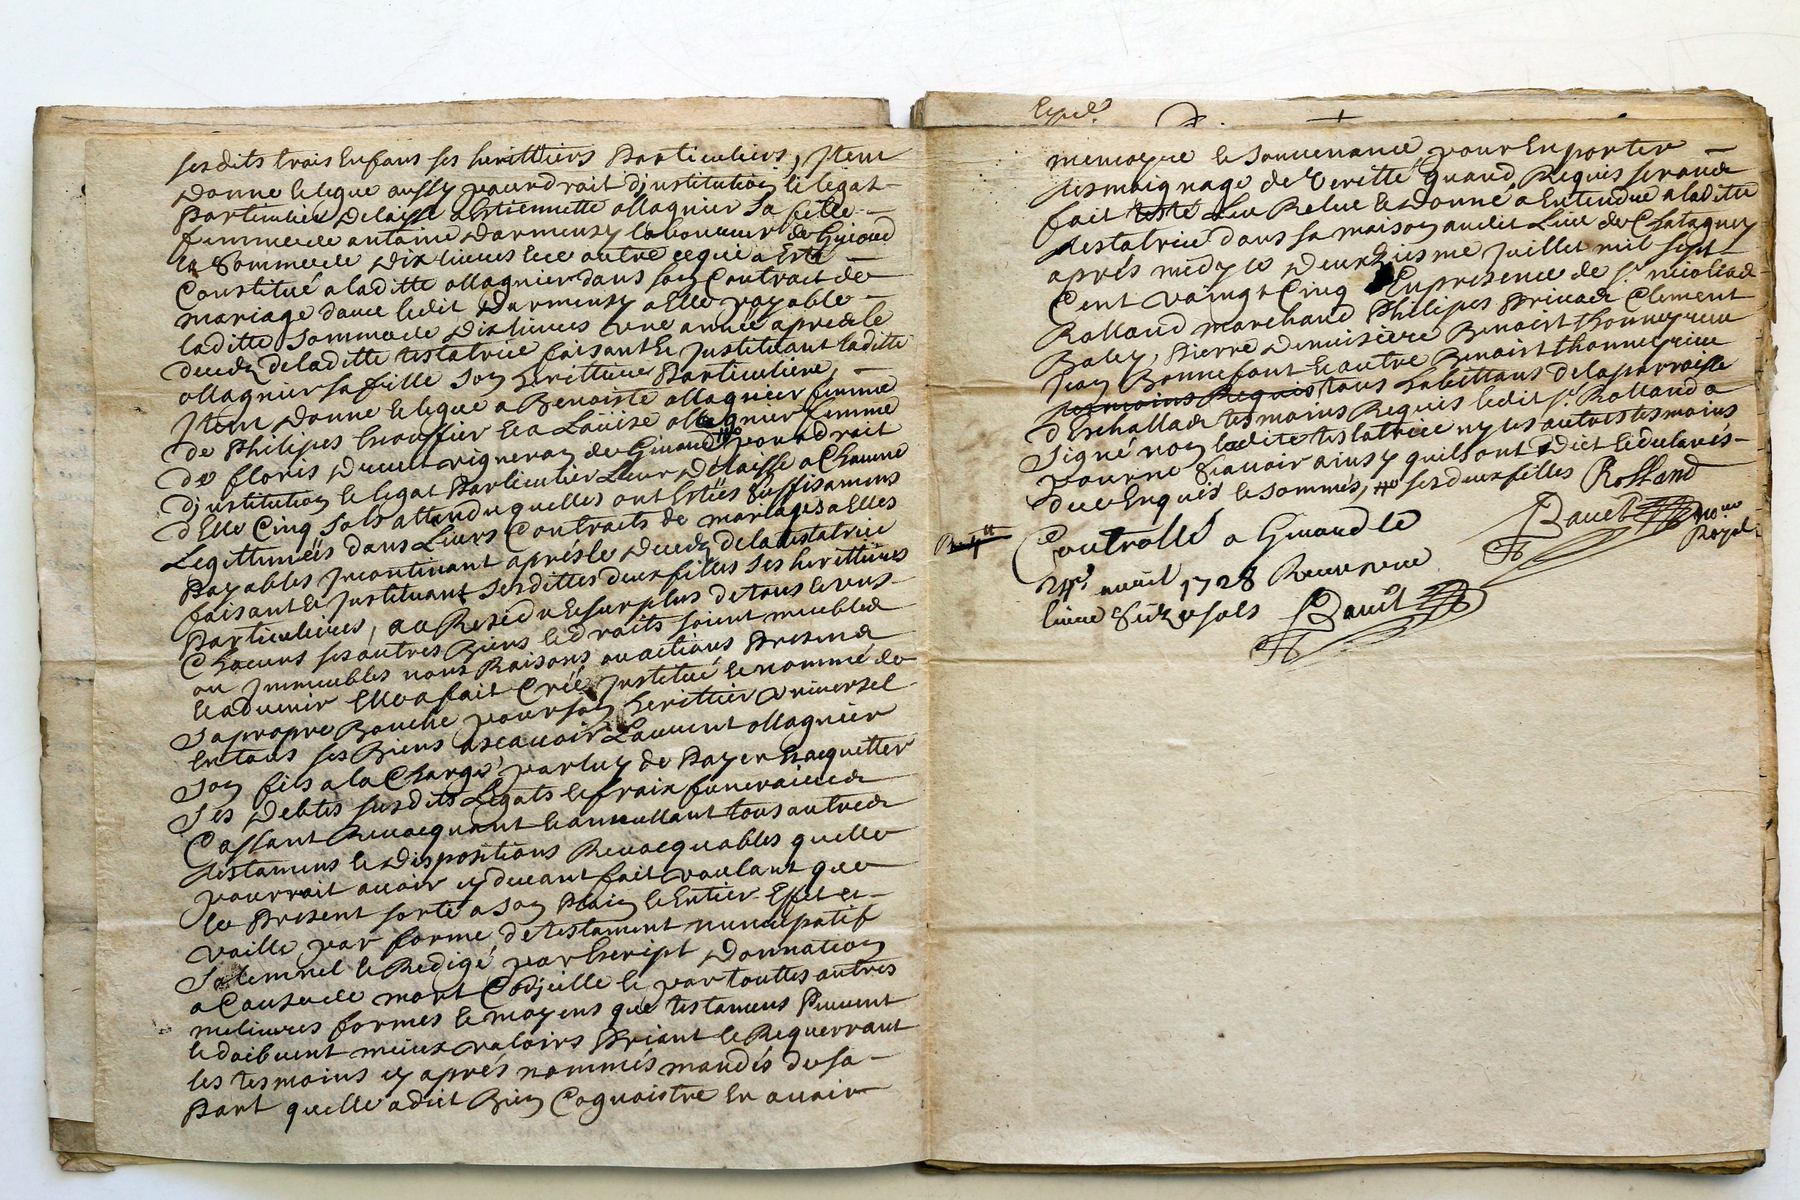 sesdits trois Enfans ses heritthiers Particuliers, Item
Donne Et legue aussy pour droit d'justitution et legat
Particulier Delaisse a Estiennette ollagnier Sa fille
femme de antoine Darmensy laboureur de
la Somme de Dix livres et ce outre ce qui a Esté
Constitué a laditte ollagnier dans son Contrait de
mariage dauec ledit Darmensy a Elle payable
laditte Somme de Dix livres une année apres le
deceds de laditte testatrice faisant Et Justituant laditte
ollagnier sa fille Son herittiere Particuliere,
Item Donne Et legue a Benoiste ollagnier femme
de Philipes Et a Louise ollagnier femme
de floris vigneron de pour droit
d'justitution Et legat Particulier Leur Delaisse a Chacune
d'Elle Cinq Sols attendu quelles ont Estéés Suffisamens
Legittiméés dans Leurs Contraits de mariages a Elles
Payables Incontinant apres le Deceds de la testatrice
faisant Et Justituant Sesdittes deux filles Ses herittieres
Particulieres, au Residu Et surplus de tous Et uns
Chacuns ses autres Biens Et droits soient meubles
ou Immeubles noms Raisons ou actions Presens
Et aduenir Elle a fait Créé Justitué Et nommé de
Sa propre Bouche pour son herittier vniversel
En tous ses Biens ascauoir Laurent ollagnier
Son fils a la Charge par luy de Payer Et acquitter
Ses Debtes susdits Legats Et fraix funeraires
Cassant Reuocquant Et annullant tous autres
testamens Et Dispositions Reuocquables quelle
pourroit auoir cy deuant fait voulant que
le Present sorte a Son Plain Et Entier Effet et
vaille par forme de testament nuncupatif
Solemnel Et Redigé par Escript Donnation
a Cause de mort Codjcille Et par touttes autres
melieures formes Et moyens que testamens Peuuent
Et doibuent mieux valoirs Priant Et Requerrant
les tesmoins cy aprés nommés mandés de sa
Part quelle a dict Bien Cognoistre En auoir
memoyre Et Souuenance pour En porter
tesmoignage de Veritté quand Requis seront
fait Leu Relue Et Donné a Entendre a laditte
testatrice dans sa maison audit Lieu de Chatagney
aprés midy le Deuxiesme Juillet mil sept
Cent vaingt Cinq En presence de Sr. nicolas
Rolland marchand Philipes Clement
Pierre Benoist
Jean Bonnefont Et autre Benoist
tesmoins Requis tous habittans de la parroisse
d'Eschallas tesmoins Requis ledit Sr. Rolland a
Signé non laditte testatrice ny les autres tesmoins
pour ne Scauoir ainsy quils ont Dict Et declarés
de ce Enquis Et Sommés, ses deux filles Rolland
Controllé a le
auril 1728 Receu
liure Sols
Royal